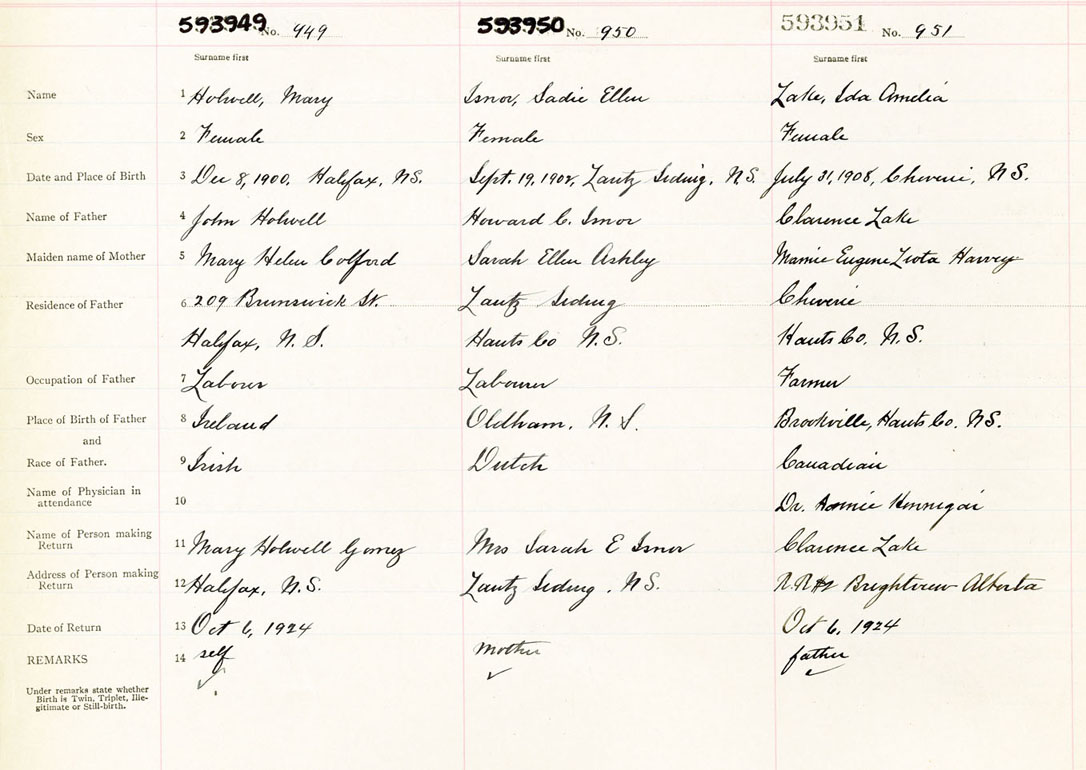 593949 No. 949 593950 No. 950 593951 No. 951
Surname first Surname first Surname first
Name 1 Holwell, Mary Isnor, Sadie Ellen Lake, Ida Amelia
Sex 2 Female Female Female
Date and Place of Birth 3 Dec 8, 1900. Halifax, N.S. Sept. 19, 1902, Lantz Siding, N.S. July 31, 1908, Cheverie, N.S.
Name of Father 4 John Holwell Howard C. Isnor Clarence Lake
Maiden name of Mother 5 Mary Helen Colford Sarah Ellen Ashley Mamie Eugene Harvey
Residence of Father 6 209 Brunswick St. Lantz Siding Cheverie
Halifax, N.S. Hants Co N.S. Hants Co. N.S.
Occupation of Father 7 Labour Labourer Farmer
Place of Birth of Father 8 Ireland Oldham, N.S. Brookville, Hants Co. N.S.
and
Race of Father. 9 Irish Dutch Canadian
Name of Physician in
attendance 10 Dr. Annie Hennigar
Name of Person making
Return 11 Mary Holwell Gomez Mrs Sarah E Isnor Clarence Lake
Address of Person making
Return 12 Halifax, N.S. Lantz Siding, N.S. Brightview Alberta
Date of Return 13 Oct 6, 1924 Oct 6, 1924
REMARKS 14 self mother father
Under remarks state whether
Birth is Twin, Triplet, Ille-
gitimate or Still-birth.